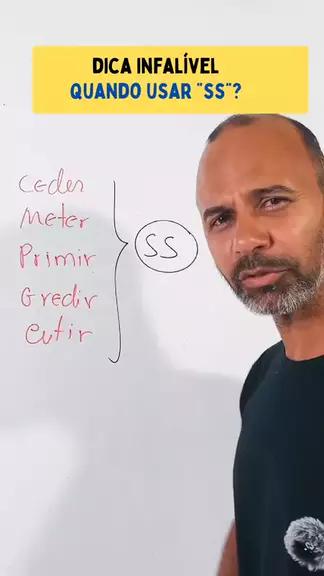 DICA INFALÍVEL
QUANDO USAR "SS"?
Ceder
Meter
Primir
Gredir
Cutir
SS